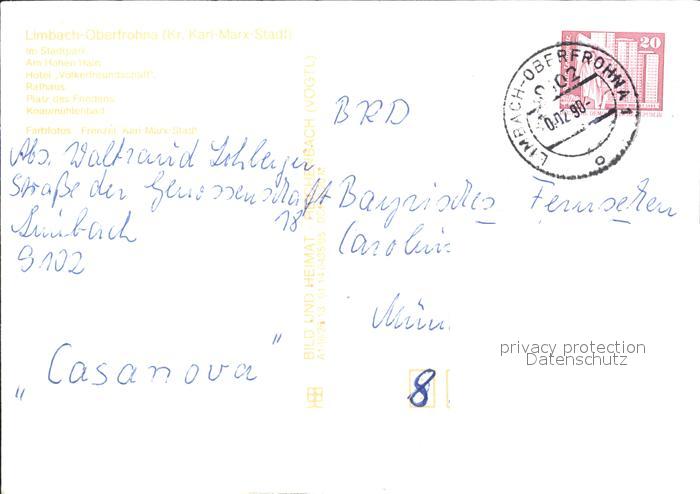 Limbach-Oberfrohna (Kr. Karl-Marx-Stadt)
Im Stadtpark
Am Hohen Hain
Hotel „Volkerfreundschaft"
Rathaus
Platz des Friedens
Knaumühlenbad
Farbfotos Frenzel, Karl-Marx-Stadt
Abs. Waltraud
Straße der Genossenschaft
18
Limbach
9102
„Casanova"
BILD UND HEIMAT REICHENBACH (VOGTL)
BRD
Bayrisches Fernsehen
Carolin
Mün
8
20
LIMBACH-OBERFROHNA 1
9102
privacy protection
Datenschutz